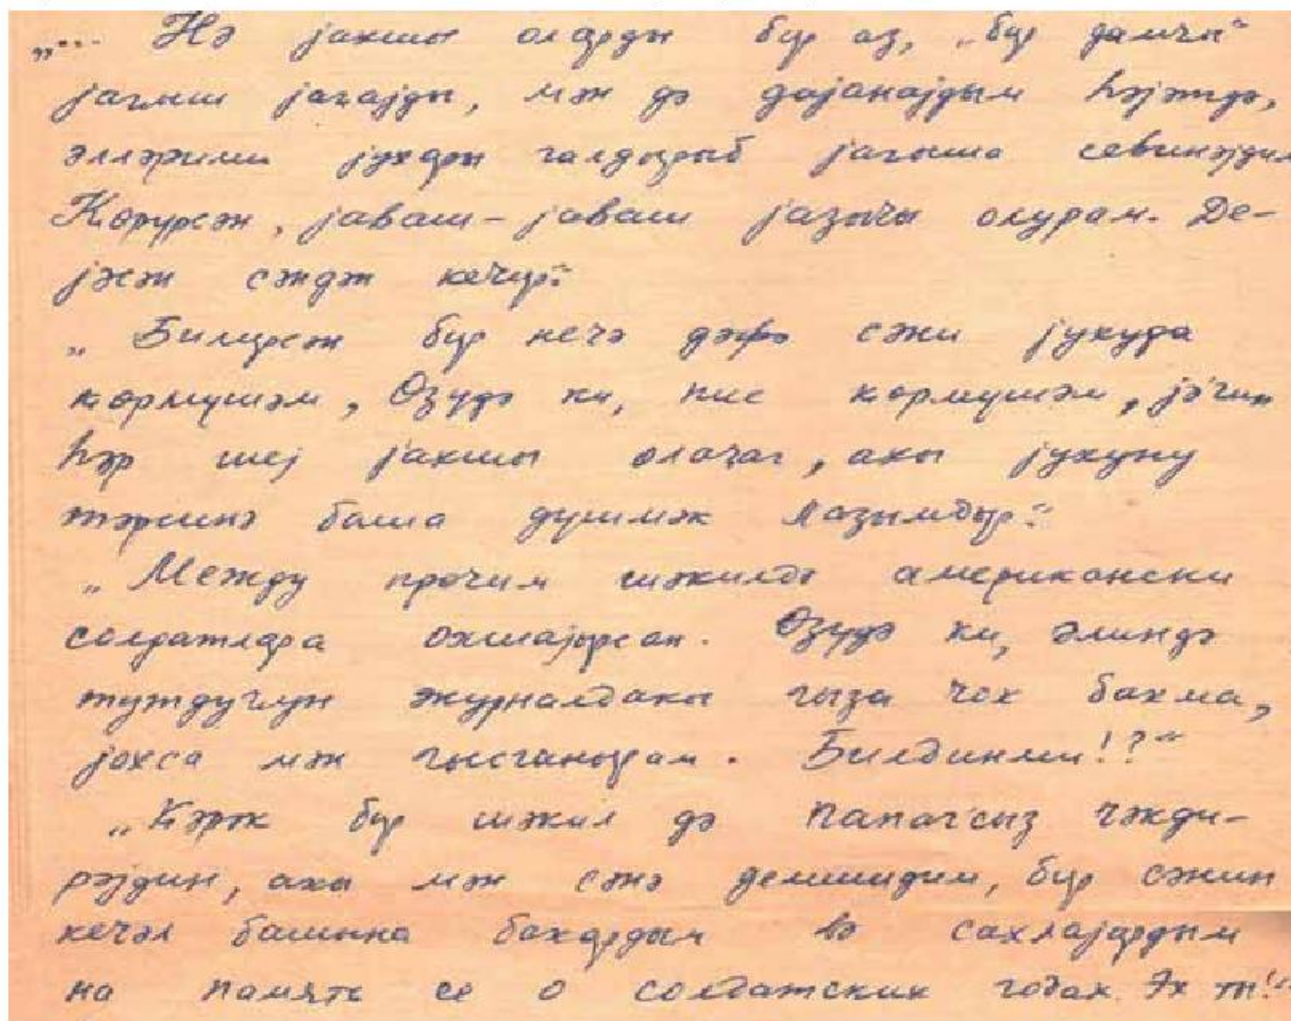 „... Нә јахшы оларды бир аз, „бир дамчы“
јағыш јағајды, мән дә дајанајдым һәјәтдә,
әлләрими јухары галдырыб јағыша севинәјдим
Көрүрсән, јаваш-јаваш јазычы олурам. Де-
јәсән сәндән кечир.“
„Билирсән бир нечә дәфә сәни јухуда
көрмүшәм, Өзүдә ки, пис көрмүшәм, јәгин
һәр шеј јахшы олачаг, ахы јухуну
тәрсинә баша дүшмәк лазымдыр.“
„Между прочим шәкилдә американски
солдатлара охшајырсан. Өзүдә ки, әлиндә
тутдуғун журналдакы гыза чох бахма,
јохса мән гысганырам. Билдинми!?“
„Кәрәк бир шәкил дә папагсыз чәкди-
рәјдин, ахы мән сәнә демишдим, бир сәнин
кечәл башына бахардым вә сахлајардым
на память се о солдатских годах. Эх ты!“